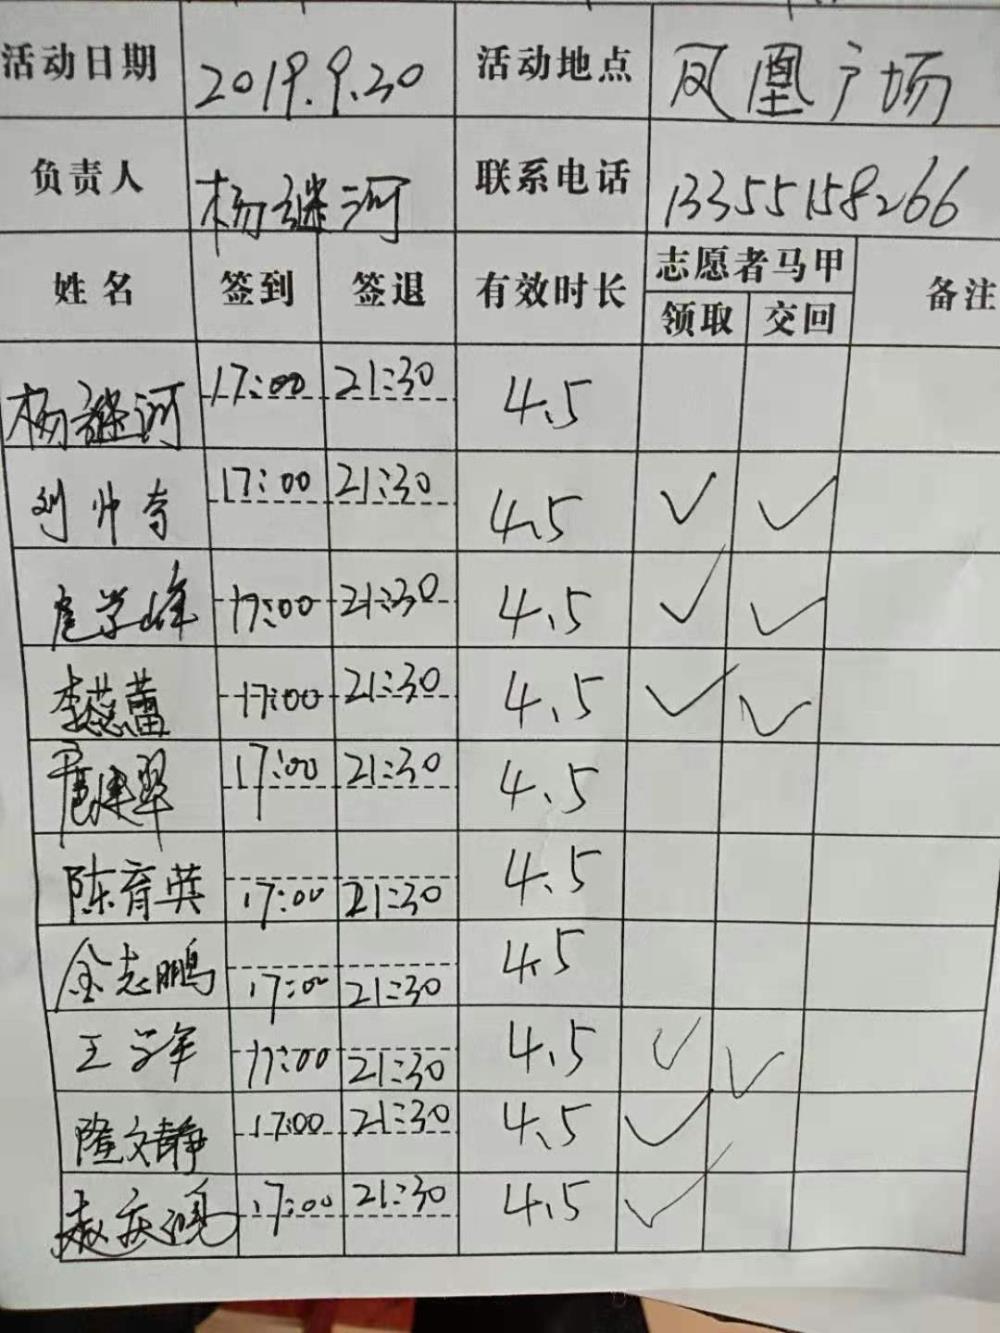 活动日期 2019.9.30 活动地点 凤凰广场
负责人 杨谜河 联系电话 13355158266
姓名 签到 签退 有效时长 志愿者马甲 备注
领取 交回
杨谜河 17:00 21:30 4.5
刘帅奇 17:00 21:30 4.5 ✓ ✓
扈学峰 17:00 21:30 4.5 ✓ ✓
李蕊蕾 17:00 21:30 4.5 ✓ ✓
17:00 21:30 4.5
陈育英 17:00 21:30 4.5
金志鹏 17:00 21:30 4.5
王学军 17:00 21:30 4.5 ✓ ✓
隆文静 17:00 21:30 4.5 ✓
赵庆鸿 17:00 21:30 4.5 ✓